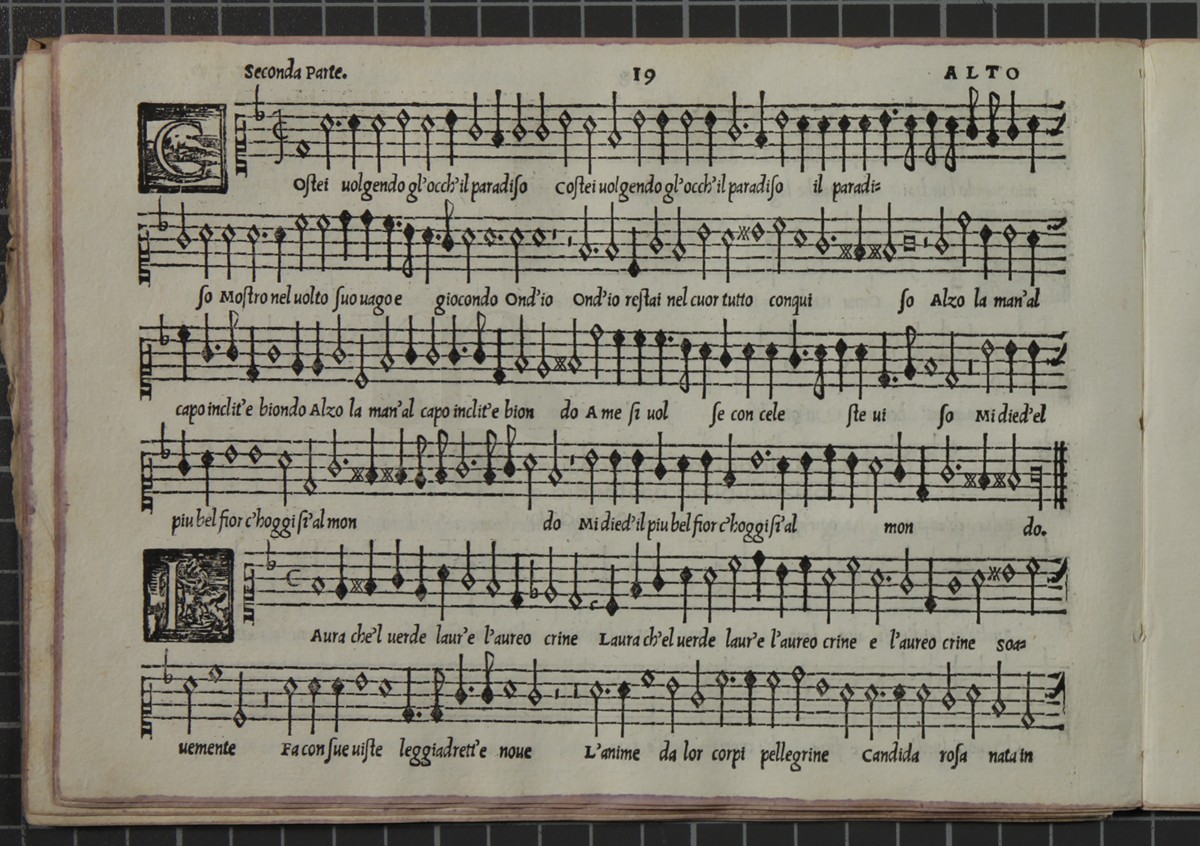 Seconda Parte. 19 ALTO
COſtei uolgendo gl'occh'il paradiſo Coſtei uolgendo gl'occh'il paradiſo il paradi=
ſo Moſtro nel uolto ſuo uago e giocondo Ond'io Ond'io reſtai nel cuor tutto conqui ſo Alzo la man'al
capo inclit'e biondo Alzo la man'al capo inclit'e bion do A me ſi uol ſe con cele ſte ui ſo Mi died'el
piu bel fior c'hoggi ſi'al mon do Mi died'il piu bel fior c'hoggi ſi'al mon do.
LAura che'l uerde laur'e l'aureo crine Laura ch'el uerde laur'e l'aureo crine e l'aureo crine soa=
uemente Fa con ſue uiſte leggiadrett'e noue L'anime da lor corpi pellegrine Candida roſa nata in